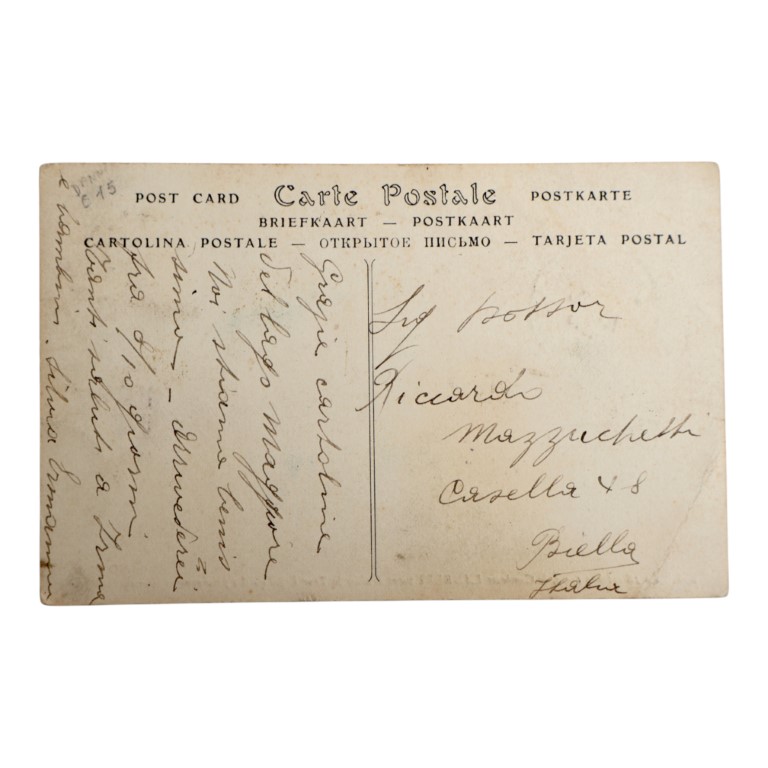 POST CARD Carte Postale POSTKARTE
BRIEFKAART — POSTKAART
CARTOLINA POSTALE — ОТКРЫТОЕ ПИСЬМО — TARJETA POSTAL
Grazie cartoline
del lago Maggiore
Noi stiamo benis
simo – Arrivederci
fra 8/10 giorni
Tanti saluti a Irma
e bambini. Silvia Ermanno
Sig Dottor
Riccardo
Mazzuchetti
Casella 48
Biella
Italia